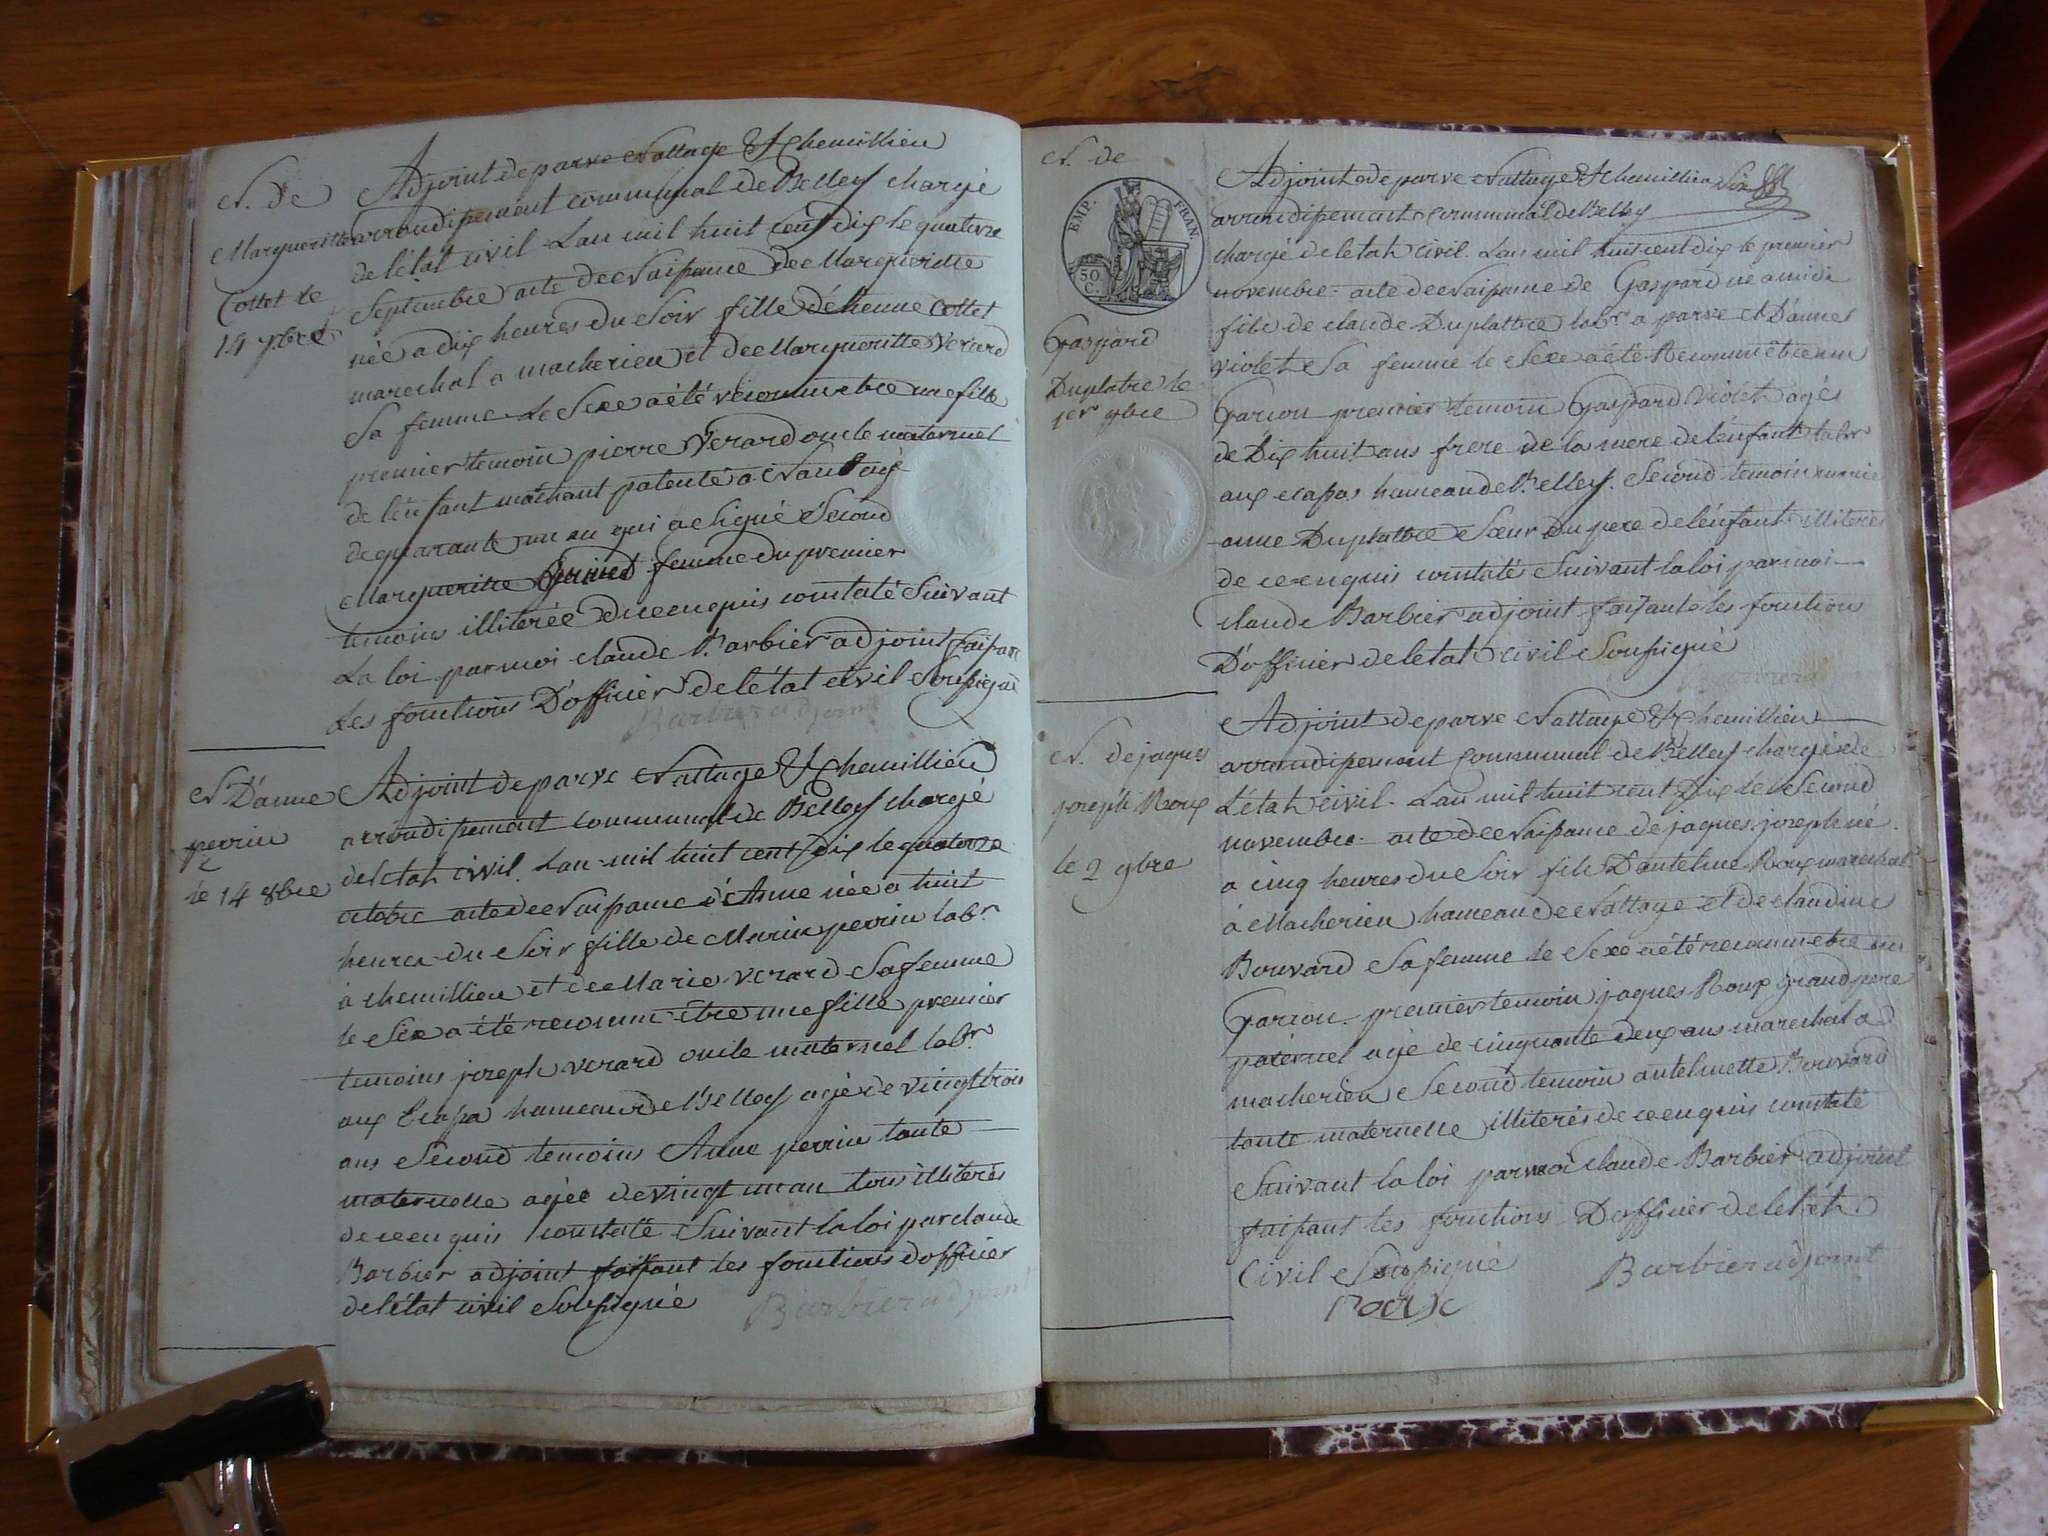 N. de
Margueritte
Cottet le
14 7bre
Adjoint de parve Nattage & Chemillieu
arrondissement communal de Belley chargé
de l'état civil. L'an mil huit cent dix le quatorze
Septembre acte de Naissance de Margueritte
née a dix heures du Soir fille d'étienne Cottet
marechal a macherieu et de Margueritte Verard
Sa femme. Le Sexe a été reconnu etre une fille
premier temoin pierre Verard oncle maternel
de l'enfant marchant patenté a Nant agé
de quarante un an qui a Signé Second
Margueritte femme du premier
temoins illiterée de ce enquis constaté Suivant
La loi par moi claude Barbier adjoint faisant
Les fonctions D'officier de l'état civil Soussigné
Barbier adjoint
N D'anne
perrin
le 14 8bre
Adjoint de parve Nattage & Chemillieu
arrondissement communal de Belley chargé
de letat civil. L'an mil huit cent dix le quatorze
octobre acte de Naissance d'Anne née a huit
heures du Soir fille de Marin perrin labr
à chemillieu et de Marie verard Sa femme
le Sexe a été reconnu être une fille premier
temoins joseph verard oncle maternel labr
aux Ecapa hameau de Belley agé de vingt trois
ans Second temoins Anne perrin tante
maternelle agée de vingt un an tous illiterés
de ce enquis constaté Suivant la loi par claude
Barbier adjoint faisant les fonctions d'officier
de l'état civil Soussigné
Barbier adjoint
N. de
EMP. FRAN.
50
C.
Gaspard
Duplatre le
1er 9bre
Adjoint de parve Nattage & Chemillieu
arrondissement communal de Belley
chargé de l'etat civil. L'an mil huit cent dix le premier
novembre acte de Naissance de Gaspard né a midi
fils de claude Duplattre labr a parve et D'anne
violet Sa femme le Sexe a été Reconnu être un
Garcon premier temoin Gaspard Violet agés
de Dix huit ans frere de la mere de l'enfant labr
aux ecapas hameau de Belley. Second temoin marie
anne Duplattre Sœur Du pere de l'enfant illiterés
de ce enquis constaté Suivant la loi par moi
claude Barbier adjoint faisant les fonction
D'officier de l'etat civil Soussigné
N. de jaques
joseph Roux
le 2 9bre
Adjoint de parve Nattage & Chemillieu
arrondissement Communal de Belley chargé de
L'état civil. L'an mil huit cent Dix le Second
novembre acte de Naissance de jaques joseph né
a cinq heures du Soir fils D'antelme Roux marechal
à Macherieu hameau de Nattage et de claudine
Bouvard Sa femme le Sexe a été reconnu etre un
Garcon. premier temoin jaques Roux grand pere
paternel agé de cinquante deux ans marechal a
macherieu Second temoin antelmette Bouvard
tante maternelle illiterés de ce enquis constaté
Suivant la loi par moi claude Barbier adjoint
faisant les fonctions D'officier de l'etat
Civil Soussigné
Barbier adjoint
Roux